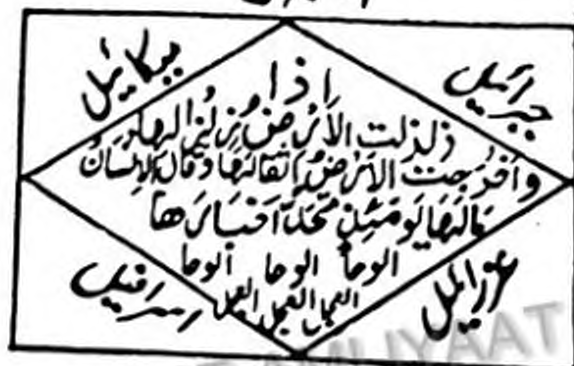 جبرائیل
میکائیل
اذا
زلزلت الارض زلزالها
واخرجت الارض اثقالها وقال الانسان
مالها یومئذ تحدث اخبارها
الوحا الوحا الوحا
العجل العجل العجل
عزرائیل
اسرافیل
AMLIYAAT